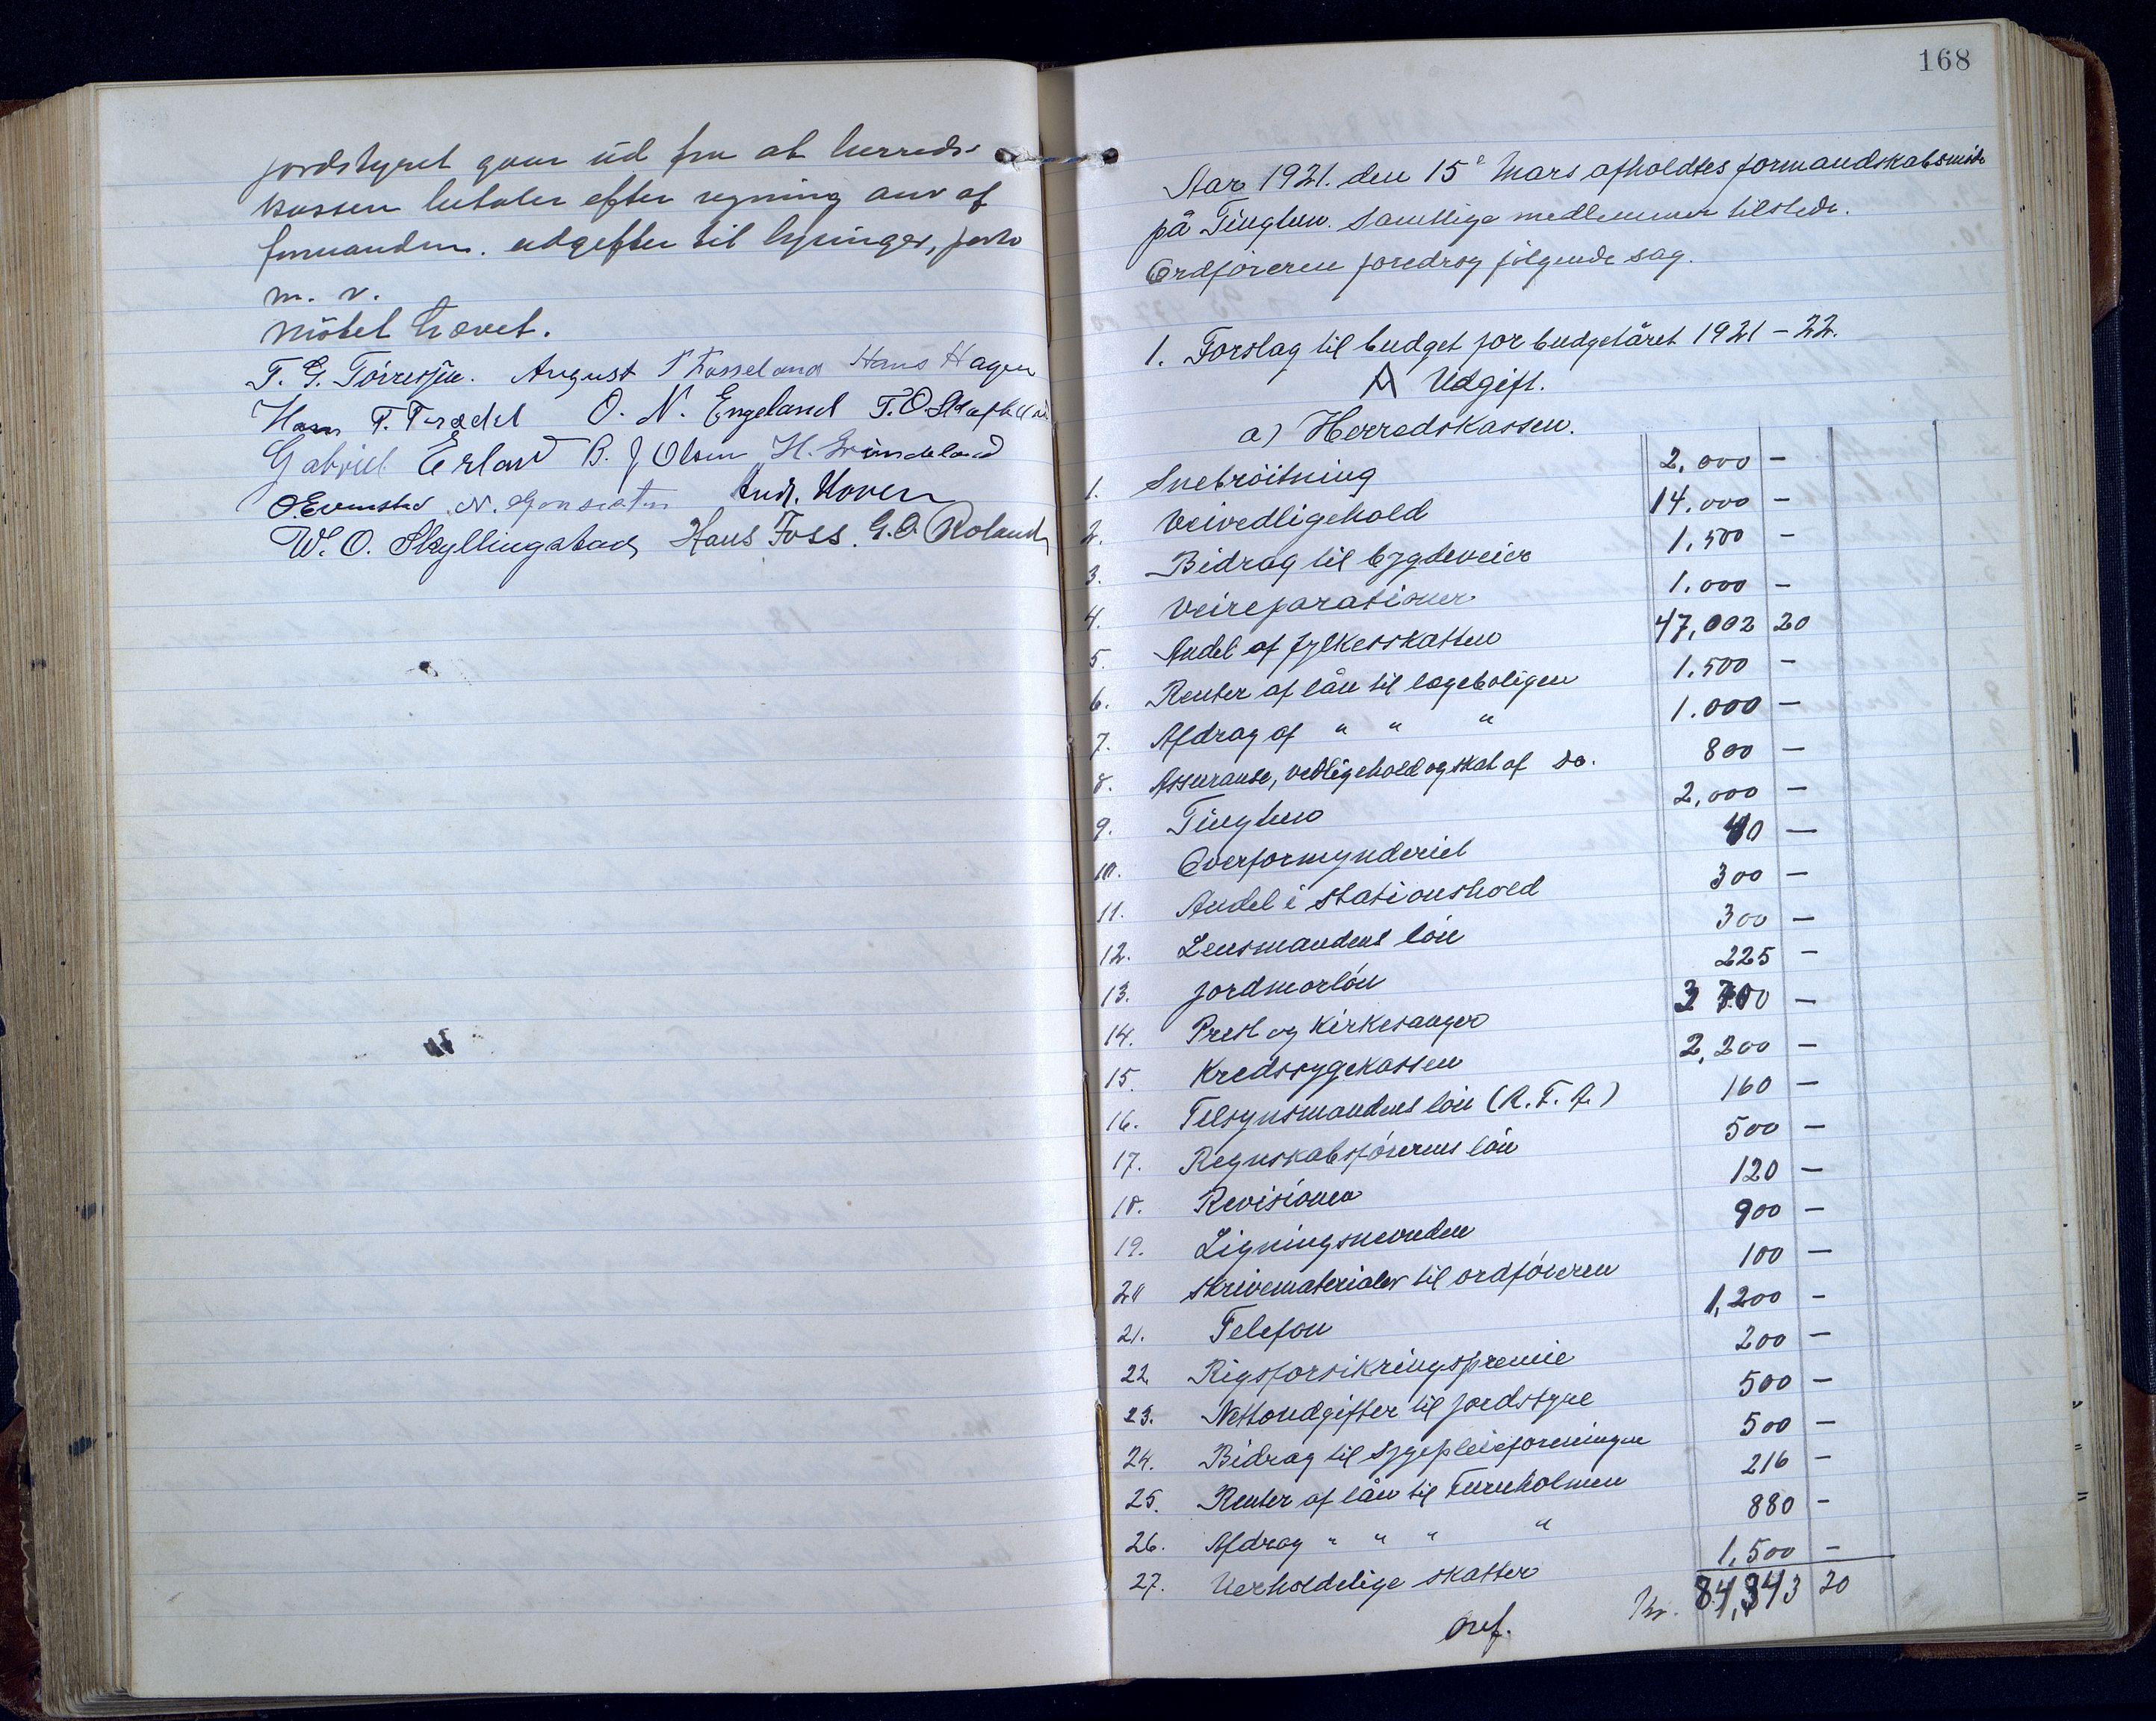 jordstyret gaar ud fra at herreds-
kassen betaler efter regning anv af
formanden. udgifter til lysninger, porto
m. v.
Mötet hævet.
T. G. Törressen. August Kosseland Hans Hagen
Hans T. Trædel O. N. Engeland T. O.
Gabriel Erland B. J Olsen H. Grimeland
O Evensted N. Gonsceten Andr. Hoven
W. O. Skyllingstad Hans Foss. G. O. Roland
168
Aar 1921. den 15de Mars afholdtes formandskabsmöte
på Tinghus. Samtlige medlemmer tilstede.
Ordföreren foredrog fölgende sag.
1. Forslag til budget for budgetåret 1921 - 22.
A Udgift.
a) Herredskassen.
1. Snebröitning 2,000 -
2. Veivedligehold 14.000 -
3. Bidrag til bygdeveier 1,500 -
4. Veireparationer 1.000 -
5. Andel af fylkesskatten 47,002 20
6. Renter af lån til lægeboligen 1.500 -
7. Afdrag af " " " 1.000 -
8. Assuranse, vedligehold og skat af Do. 800 -
9. Tinghus 2,000 -
10. Overformynderiet 40 -
11. Andel i stationshold 300 -
12. Lensmandens lön 300 -
13. Jordmorlön 225 -
14. Prest og kirkesanger 3 700 -
15. Kredssygekassen 2,200 -
16. Tilsynsmandens lön (R. F. A.) 160 -
17. Regnskabsförerens lön 500 -
18. Revisionen 120 -
19. Ligningsnevnden 900 -
20 Skrivematerialer til ordföreren 100 -
21. Telefon 1,200 -
22. Rigsforsikringspremie 200 -
23. Nettoudgifter til jordstyre 500 -
24. Bidrag til sygepleieforeningen 500 -
25. Renter af lån til Furuholmen 216 -
26. Afdrag " " " " 880 -
27. Uerholdelige skatter 1,500 -
Kr. 84,343 20
Ovf.